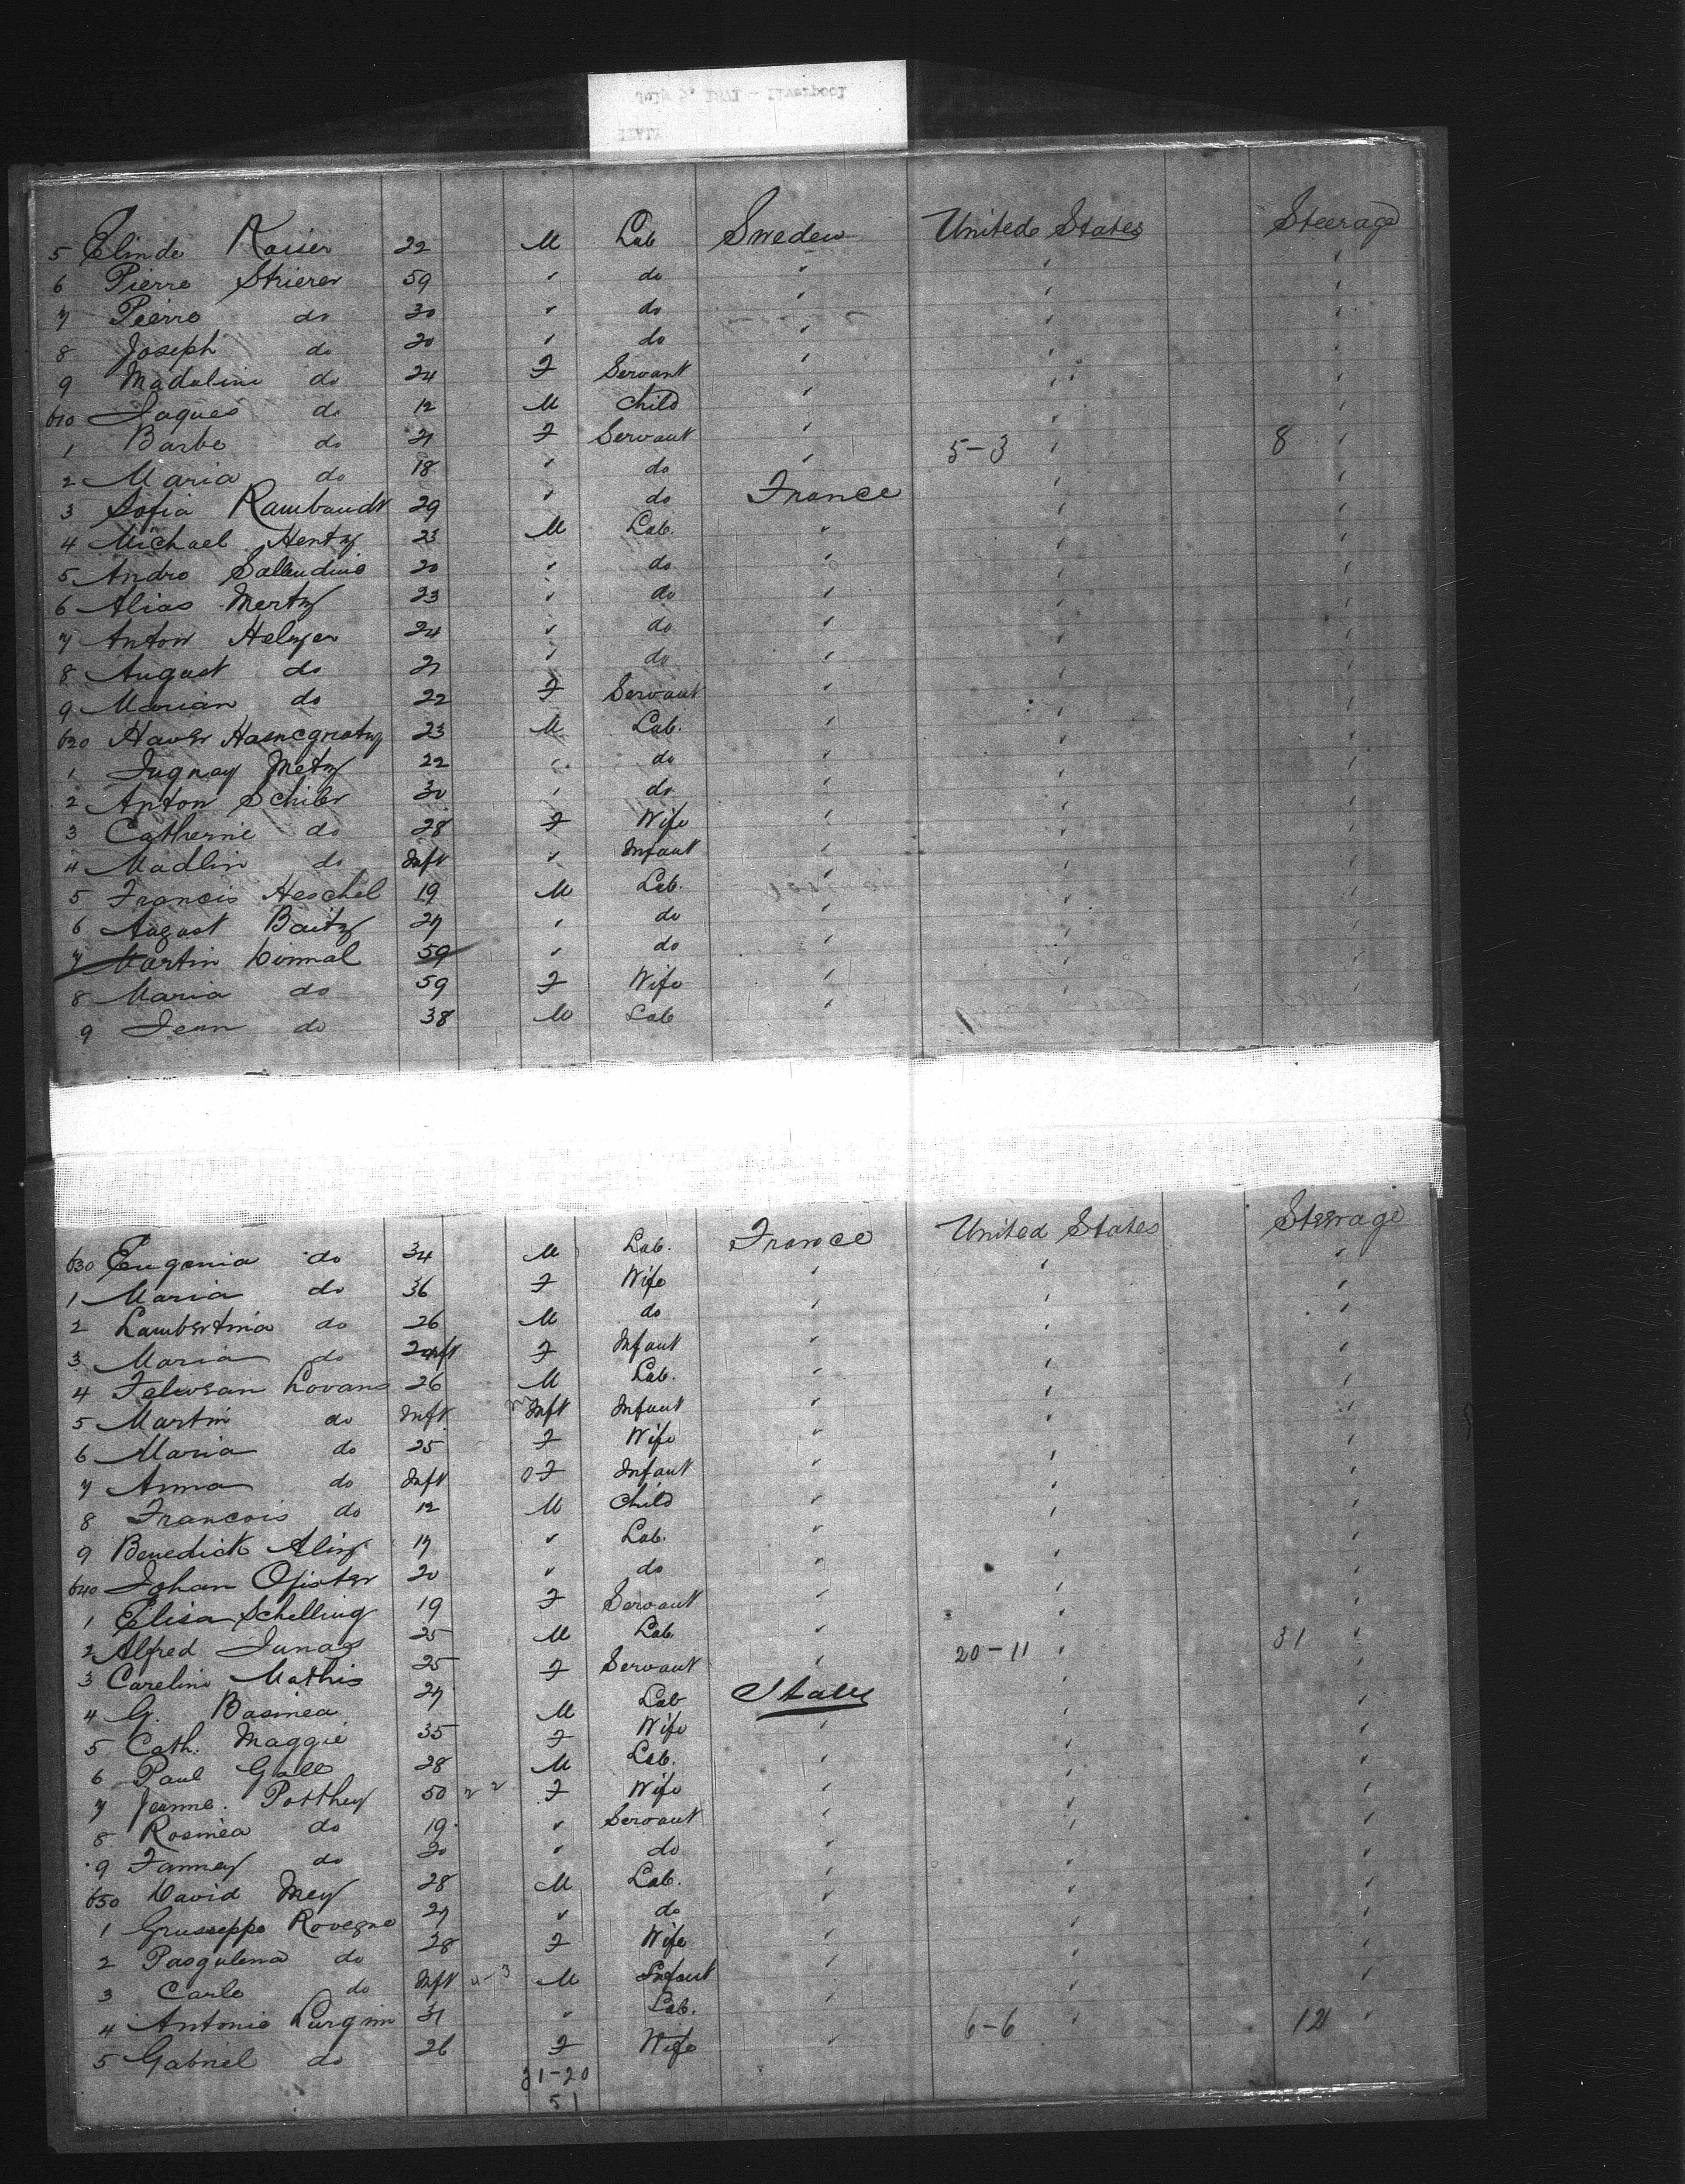 July 5, 1871 - Liverpool
5 Elinde Kaiser 22 M Lab Sweden United States Steerage
6 Pierre Strierer 59 " do " " "
7 Pierre do 30 " do " " "
8 Joseph do 20 " do " " "
9 Madalini do 24 F Servant " " "
610 Jaques do 12 M Child " " "
1 Barbe do 21 F Servant " 5-3 " 8 "
2 Maria do 18 " do " " "
3 Sofia Rambaudt 29 " do France " "
4 Michael Hentz 23 M Lab. " " "
5 Andro 20 " do " " "
6 Alias Mertz 23 " do " " "
7 Anton Helzer 24 " do " " "
8 August do 21 " do " " "
9 Marian do 22 F Servant " " "
620 Haver 23 M Lab. " " "
1 Metz 22 " do " " "
2 Anton Schiler 30 " do " " "
3 Catherine do 28 F Wife " " "
4 Madlin do Inft " Infant " " "
5 Francis Heschel 19 M Lab. " " "
6 August Baitz 27 " do " " "
7 Martin Dinmal 59 " do " " "
8 Maria do 59 F Wife " " "
9 Jean do 38 M Lab
630 Eugenia do 34 M Lab. France United States Steerage
1 Maria do 36 F Wife " " "
2 Lambertina do 26 M do " " "
3 Maria do Inft F Infant " " "
4 Lovans 26 M Lab. " " "
5 Martin do Inft Inft Infant " " "
6 Maria do 25 F Wife " " "
7 Anna do Inft F Infant " " "
8 Francois do 12 M Child " " "
9 Benedick Alinz 17 " Lab. " " "
640 Johan Opister 20 " do " " "
1 Elisa Schelling 19 F Servant " " "
2 Alfred Junass 25 M Lab. " 20-11 " 31 "
3 Carelini Mathis 25 F Servant " " "
4 G. Basinea 27 M Lab Italy " "
5 Cath. Maggie 35 F Wife " " "
6 Paul Gall 28 M Lab. " " "
7 Jeanne. Potthey 50 F Wife " " "
8 Rosinea do 19 " Servant " " "
9 Fanney do 20 " do " " "
650 David Mey 28 M Lab. " " "
1 Grusseppe Rovegno 27 " do " " "
2 Pasqulena do 28 F Wife " " "
3 Carlo do Inft M Infant " " "
4 Antonio Lurgnin 31 " Lab. " 6-6 " 12 "
5 Gabriel do 26 F Wife "
31-20
51